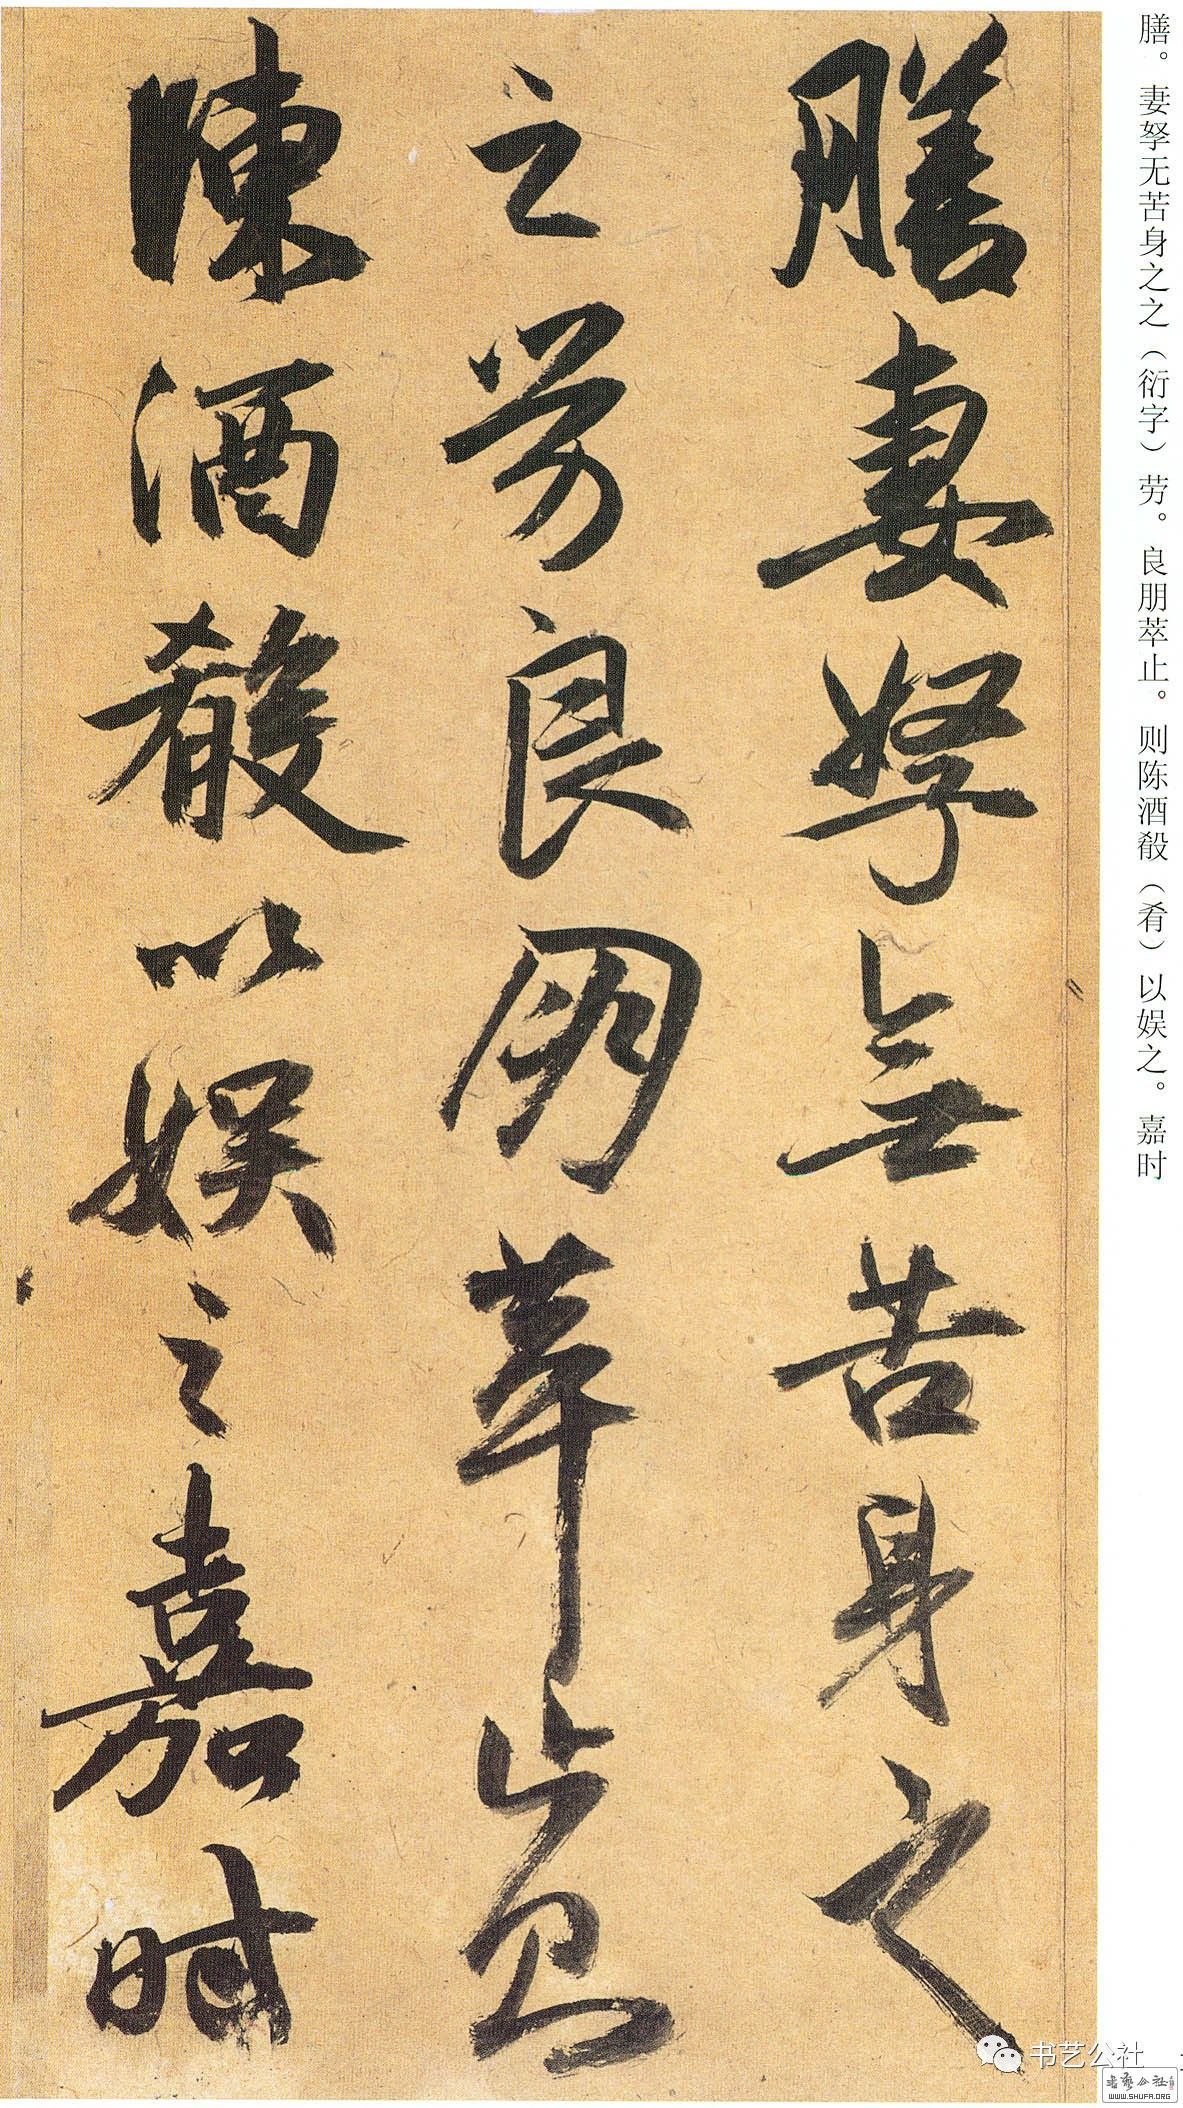 膳。妻孥无苦身之之（衍字）劳。良朋萃止。则陈酒殽（肴）以娱之。嘉时
膳妻孥無苦身之
之劳良朋萃止則
陳酒殽以娱之嘉时
书艺公社
书艺公社
WWW.SHUFA.ORG